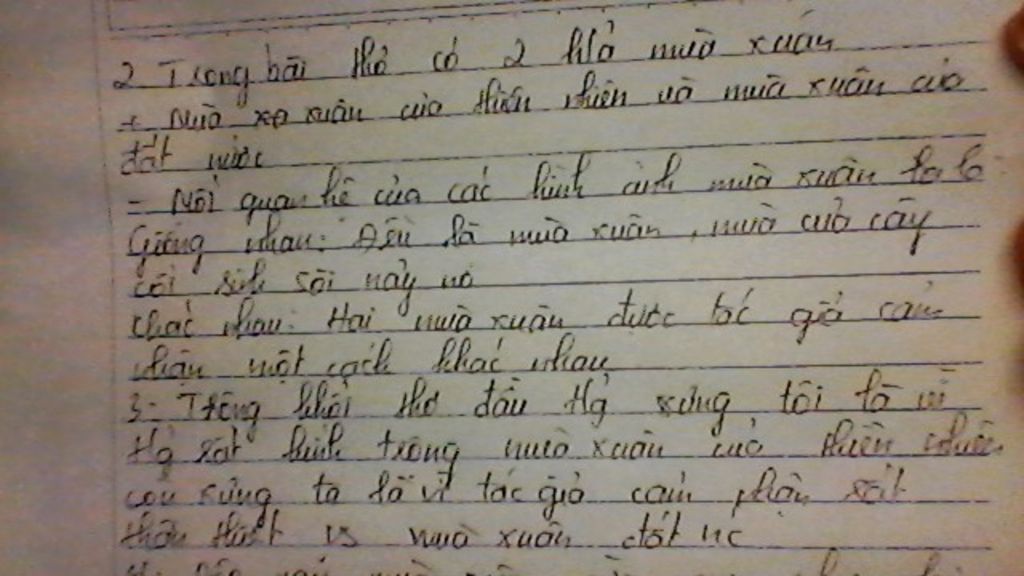 2 Trong bài thơ có 2 khổ mùa xuân
+ Mùa xa xuân của thiên nhiên và mùa xuân của
đất nước
- Mối quan hệ của các hình ảnh mùa xuân là là
Giống nhau: Đều là mùa xuân, mùa của cây
cối sinh sôi nảy nở
Khác nhau: Hai mùa xuân được tác giả cảm
nhận một cách khác nhau
3: Trong khổ thơ đầu tg xưng tôi là vì
tg trong mùa xuân của thiên nhiên
còn xưng ta là vì tác giả cảm nhận
thân thiết vs mùa xuân đất nc